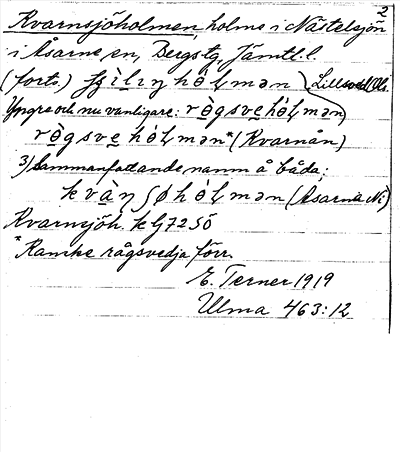 2
Kvarnsjöholmen, holme i Nästelsjön
i Åsarne sn, Bergs tg, Jämtl. l.
(forts.) hòl̥mən) Lillsved Ols.
Yngre och nu vanligare: rògsvehòl̥mən
rògsvehòl̥mən* (Kvarnån)
3) Sammanfattande namn å båda;
kvàɳʃøhòl̥mən (Åsarna N:)
Kvarnsjöh. klj 72 SÖ
*Kanske rågsvedja förr.
E. Terner 1919
Ulma 463:12